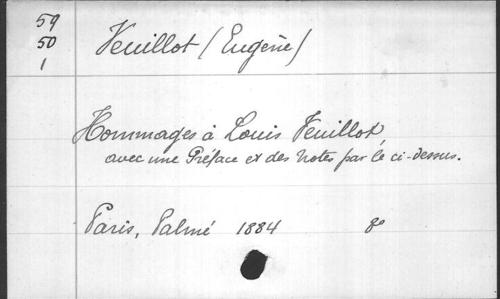 59
50
1
Veuillot (Eugène)
Hommages à Louis Veuillot,
avec une Préface et des Notes par le ci-dessus.
Paris, Palmé 1884 8º